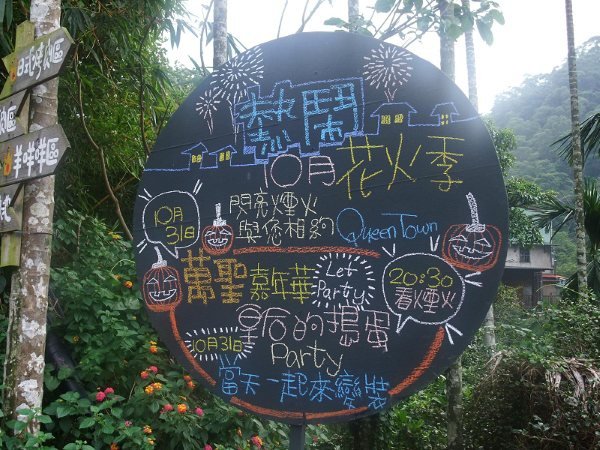 熱鬧
10月花火季
10月
31日
閃亮煙火
與您相約 Queen Town
萬聖嘉年華
Let
Party
20:30
看煙火
皇后的搗蛋
Party
10月31日
當天一起來變裝